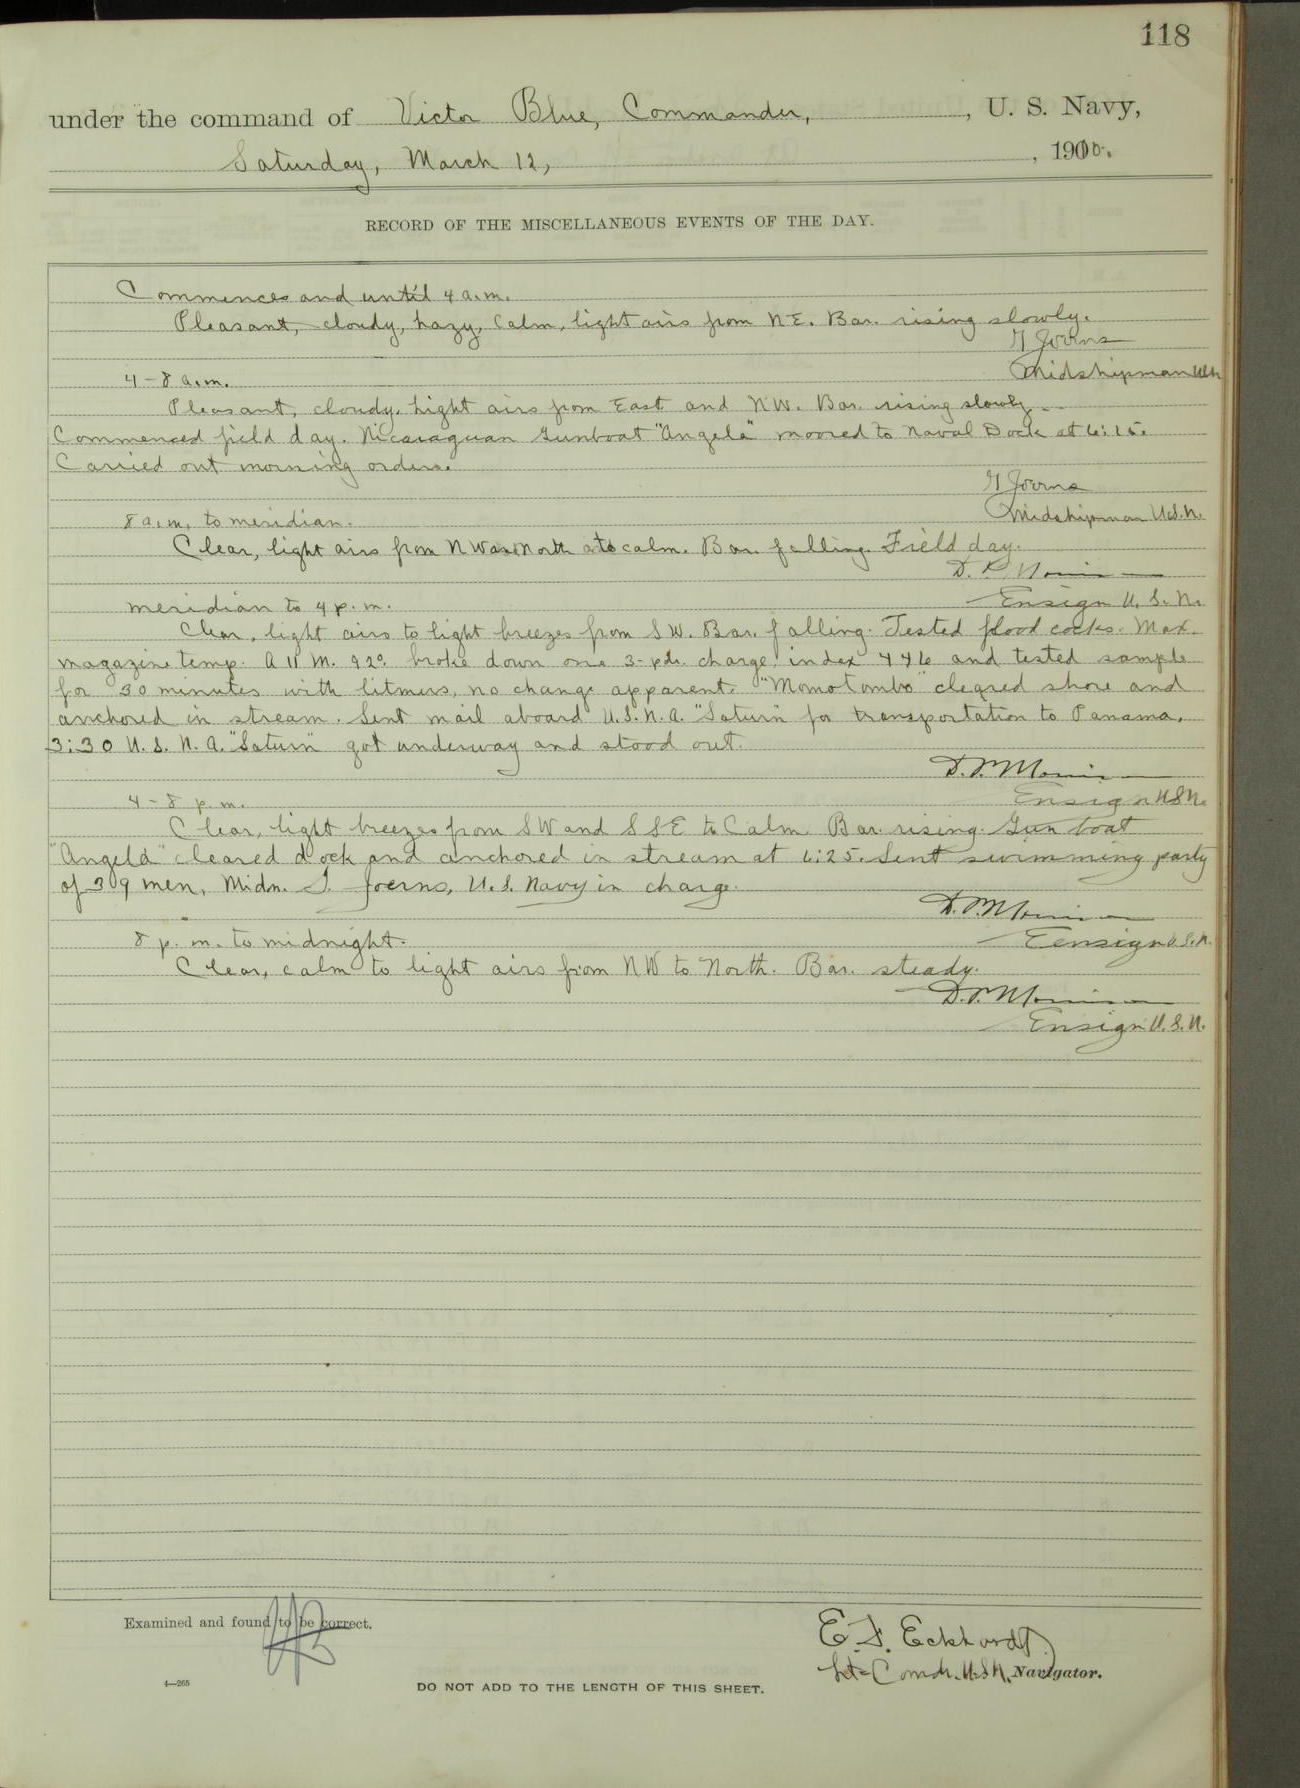 118
under the command of Victor Blue, Commander, , U. S. Navy,
Saturday, March 12, , 1910.
RECORD OF THE MISCELLANEOUS EVENTS OF THE DAY.
Commences and until 4 a.m.
Pleasant, cloudy, hazy, calm, light airs from NE. Bar. rising slowly.
G Joerns
Midshipman USN
4-8 a.m.
Pleasant, cloudy. Light airs from East and NW. Bar. rising slowly.
Commenced field day. Nicaraguan Gunboat "Angela" moored to Naval Dock at 6:15.
Carried out morning orders.
G Joerns
Midshipman U.S.N.
8 a.m. to meridian.
Clear, light airs from NW and North to calm. Bar. falling. Field day.
D. P. Morrison
Ensign U. S. N.
meridian to 4 p. m.
Clear, light airs to light breezes from SW. Bar. falling. Tested flood cocks. Max.
magazine temp. A 11 M. 92° broke down one 3-pdr. charge, index 446 and tested sample
for 30 minutes with litmus, no change apparent. "Momotombo" cleared shore and
anchored in stream. Sent mail aboard U.S.N.A. "Saturn" for transportation to Panama.
3:30 U. S. N. A. "Saturn" got underway and stood out.
D. P. Morrison
Ensign USN.
4-8 p. m.
Clear, light breezes from SW and SSE to Calm. Bar. rising. Gun boat
"Angela" cleared dock and anchored in stream at 6:25. Sent swimming party
of 39 men, Midn. G. Joerns, U. S. Navy in charge.
D. P. Morrison
Eensign U.S.N.
8 p. m. to midnight.
Clear, calm to light airs from NW to North. Bar. steady.
D. P. Morrison
Ensign U. S. N.
Examined and found to be correct.
E. F. Eckhardt
Lt-Comdr. U.S.N. Navigator.
4—265
DO NOT ADD TO THE LENGTH OF THIS SHEET.